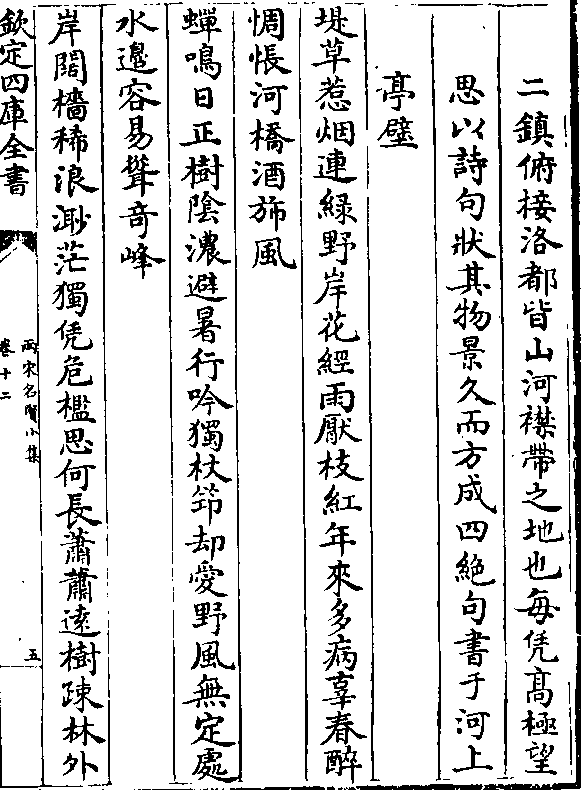 二鎮俯接洛都皆山河襟帶之地也毎凭髙極望
思以詩句狀其物景久而方成四絶句書于河上
亭壁
堤草惹烟連緑野岸花經雨厭枝紅年來多病辜春醉
惆悵河橋酒斾風
蟬鳴日正樹陰濃避暑行吟獨杖笻却愛野風無定處
水邉容易聳竒峰
岸闊檣稀浪渺茫獨凭危檻思何長蕭蕭逺樹疎林外
欽定四庫全書
兩宋名賢小集
卷十二
五